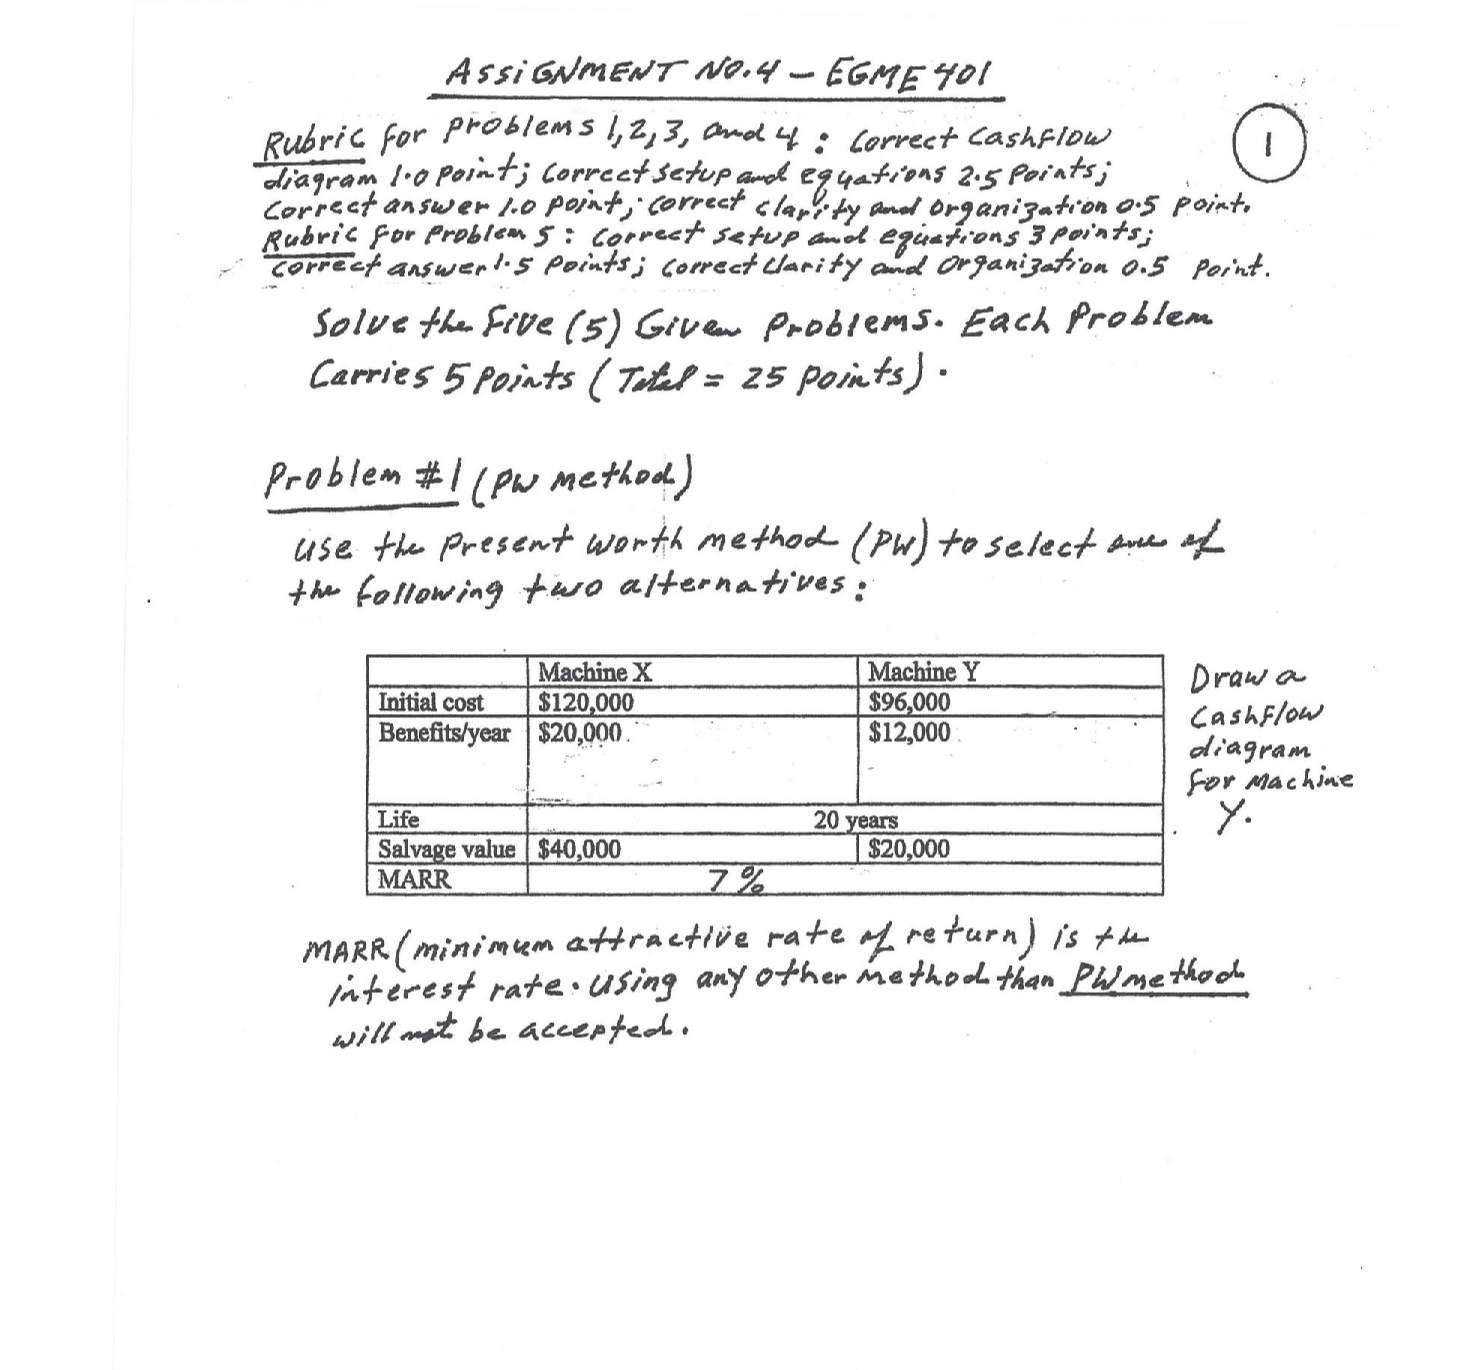 ASSIGNMENT NO.4 – EGME 401
1
Rubric for problems 1, 2, 3, and 4 : Correct Cashflow
diagram 1.0 point; Correct setup and equations 2.5 Points;
Correct answer 1.0 point; correct clarity and organization 0.5 point.
Rubric for Problem 5 : Correct setup and equations 3 points;
Correct answer 1.5 Points; Correct Clarity and Organization 0.5 Point.
Solve the Five (5) Given Problems. Each Problem
Carries 5 Points ( Total = 25 points) .
Problem #1 (PW method)
Use the Present worth method (PW) to select one of
the following two alternatives :
Machine X Machine Y
Initial cost $120,000 $96,000
Benefits/year $20,000 $12,000
Life 20 years
Salvage value $40,000 $20,000
MARR 7%
Draw a
Cashflow
diagram
for Machine
Y.
MARR (minimum attractive rate of return) is the
interest rate. Using any other method than PW method
will not be accepted.